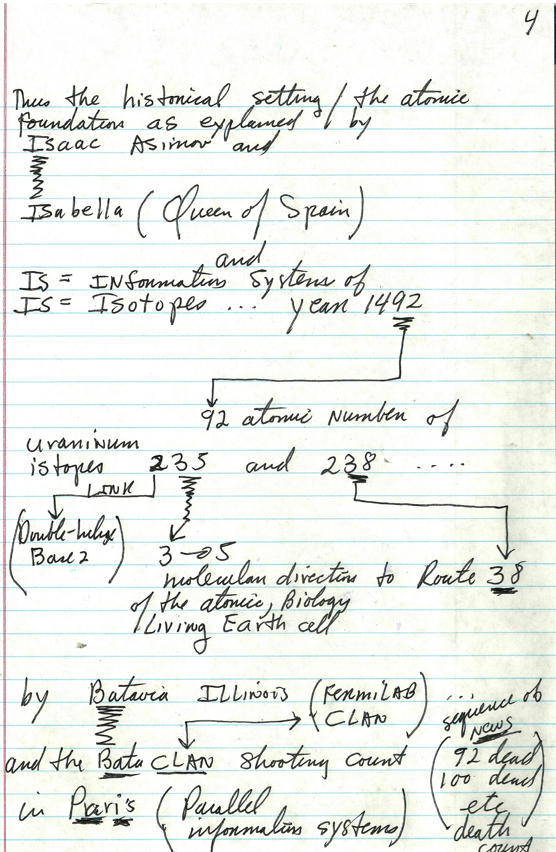 4
Thus the historical setting / the atomic
foundation as explained / by
Isaac Asimov and
Isabella (Queen of Spain)
and
IS = INformation Systems of
IS = Isotopes ... year 1492
92 atomic Number of
uraninum
istopes 235 and 238 ....
LINK
(Double-helix
Base 2)
3 → 5
molecular direction to Route 38
of the atomic, Biology
/ Living Earth cell
by Batavia ILLINOIS (FermiLAB
CLAN)
... sequence of
News
and the Bata CLAN shooting count
(92 dead
100 dead
etc
death
count
in Praris (Parallel
information systems)